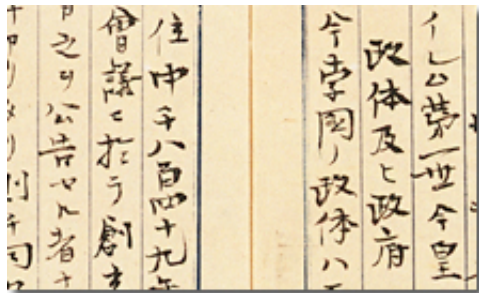 イレム第一世今皇
政体及ヒ政府
今孛國ノ政体ハ
住中千八百四十九年
會議ニ於テ創
日之ヲ公告セル者
則チ同